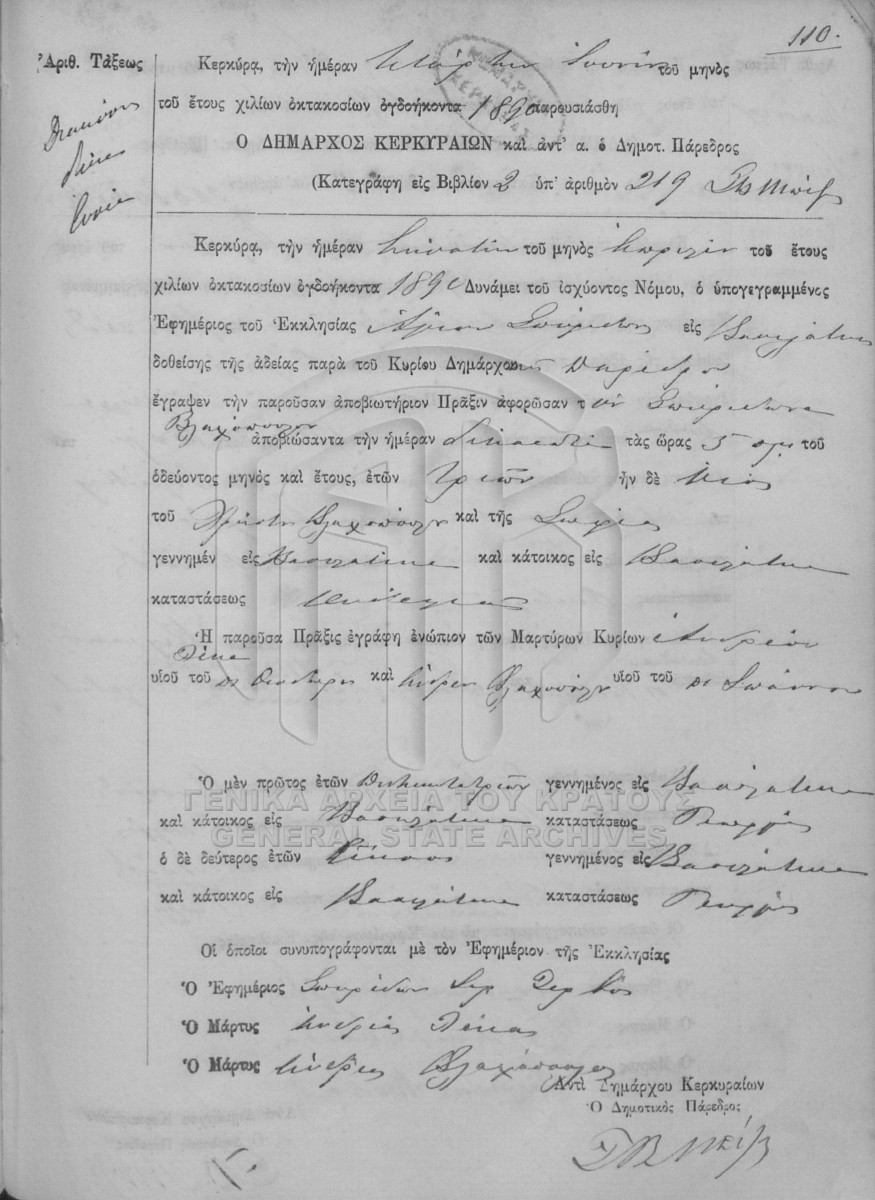 110.
Ἀριθ. Τάξεως
Κερκύρᾳ, τὴν ἡμέραν Τετάρτην Ἰουνίου τοῦ μηνὸς
τοῦ ἔτους χιλίων ὀκτακοσίων ὀγδοήκοντα 1890 παρουσιάσθη
Ὁ ΔΗΜΑΡΧΟΣ ΚΕΡΚΥΡΑΙΩΝ καὶ ἀντ' α. ὁ Δημοτ. Πάρεδρος
(Κατεγράφη εἰς Βιβλίον 2 ὑπ' ἀριθμὸν 219
Διακόσια
δέκα
ἐννέα
Κερκύρᾳ, τὴν ἡμέραν τοῦ μηνὸς Ἀπριλίου τοῦ ἔτους
χιλίων ὀκτακοσίων ὀγδοήκοντα 1890 Δυνάμει τοῦ ἰσχύοντος Νόμου, ὁ ὑπογεγραμμένος
Ἐφημέριος τοῦ Ἐκκλησίας Ἁγίου Σπυρίδωνος εἰς Βασιλάτικα
δοθείσης τῆς ἀδείας παρὰ τοῦ Κυρίου Δημάρχου Παρέδρου
ἔγραψεν τὴν παροῦσαν ἀποβιωτήριον Πρᾶξιν ἀφορῶσαν τὸν Σπυρίδωνα
Βλαχόπουλον
ἀποβιώσαντα τὴν ἡμέραν Δεκάτην τὰς ὥρας 5 π.μ. τοῦ
ὁδεύοντος μηνὸς καὶ ἔτους, ἐτῶν τριῶν ἦν δὲ υἱὸς
τοῦ Χρήστου Βλαχοπούλου καὶ τῆς Σοφίας
γεννημέν εἰς Βασιλάτικα καὶ κάτοικος εἰς Βασιλάτικα
καταστάσεως
Ἡ παροῦσα Πρᾶξις ἐγράφη ἐνώπιον τῶν Μαρτύρων Κυρίων Ἀνδρέου
Λέκα
υἱοῦ τοῦ ποτὲ Θεοδώρου καὶ Ἀνδρέου Βλαχοπούλου υἱοῦ τοῦ ποτὲ Ἰωάννου
Ὁ μὲν πρῶτος ἐτῶν γεννημένος εἰς Βασιλάτικα
καὶ κάτοικος εἰς Βασιλάτικα καταστάσεως Γεωργὸς
ὁ δὲ δεύτερος ἐτῶν εἴκοσι γεννημένος εἰς Βασιλάτικα
καὶ κάτοικος εἰς Βασιλάτικα καταστάσεως Γεωργὸς
ΓΕΝΙΚΑ ΑΡΧΕΙΑ ΤΟΥ ΚΡΑΤΟΥΣ
GENERAL STATE ARCHIVES
Οἱ ὁποῖοι συνυπογράφονται μὲ τὸν Ἐφημέριον τῆς Ἐκκλησίας
Ὁ Ἐφημέριος Σπυρίδων
Ὁ Μάρτυς Ἀνδρέας Λέκας
Ὁ Μάρτυς Ἀνδρέας Βλαχόπουλος
Ἀντὶ Δημάρχου Κερκυραίων
Ὁ Δημοτικὸς Πάρεδρος